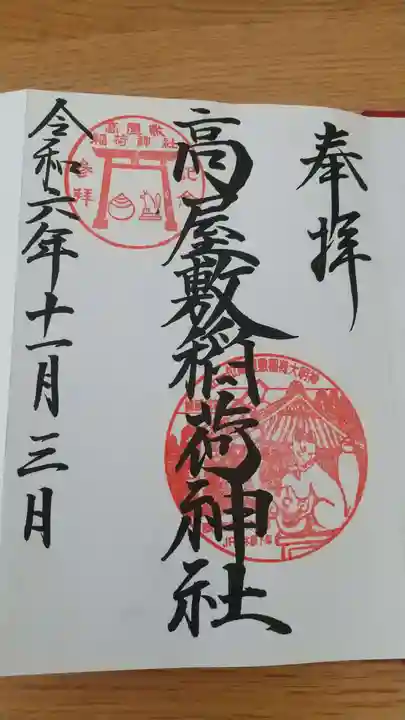 奉拝
高屋敷稲荷神社
令和六年十一月三日
高屋敷
稲荷神社
参拝
記念